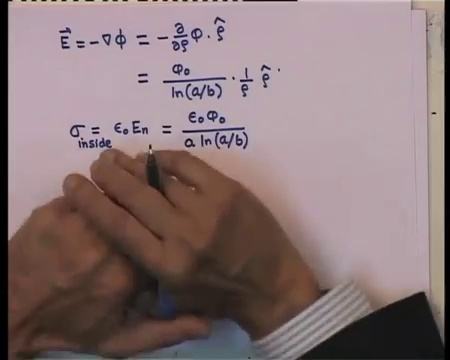 E⃗ = -∇ϕ = - ∂/∂ρ Φ. ρ̂
= Φ₀/ln(a/b) · 1/ρ ρ̂
σ inside = ϵ₀ Eₙ = ϵ₀Φ₀/a ln(a/b)